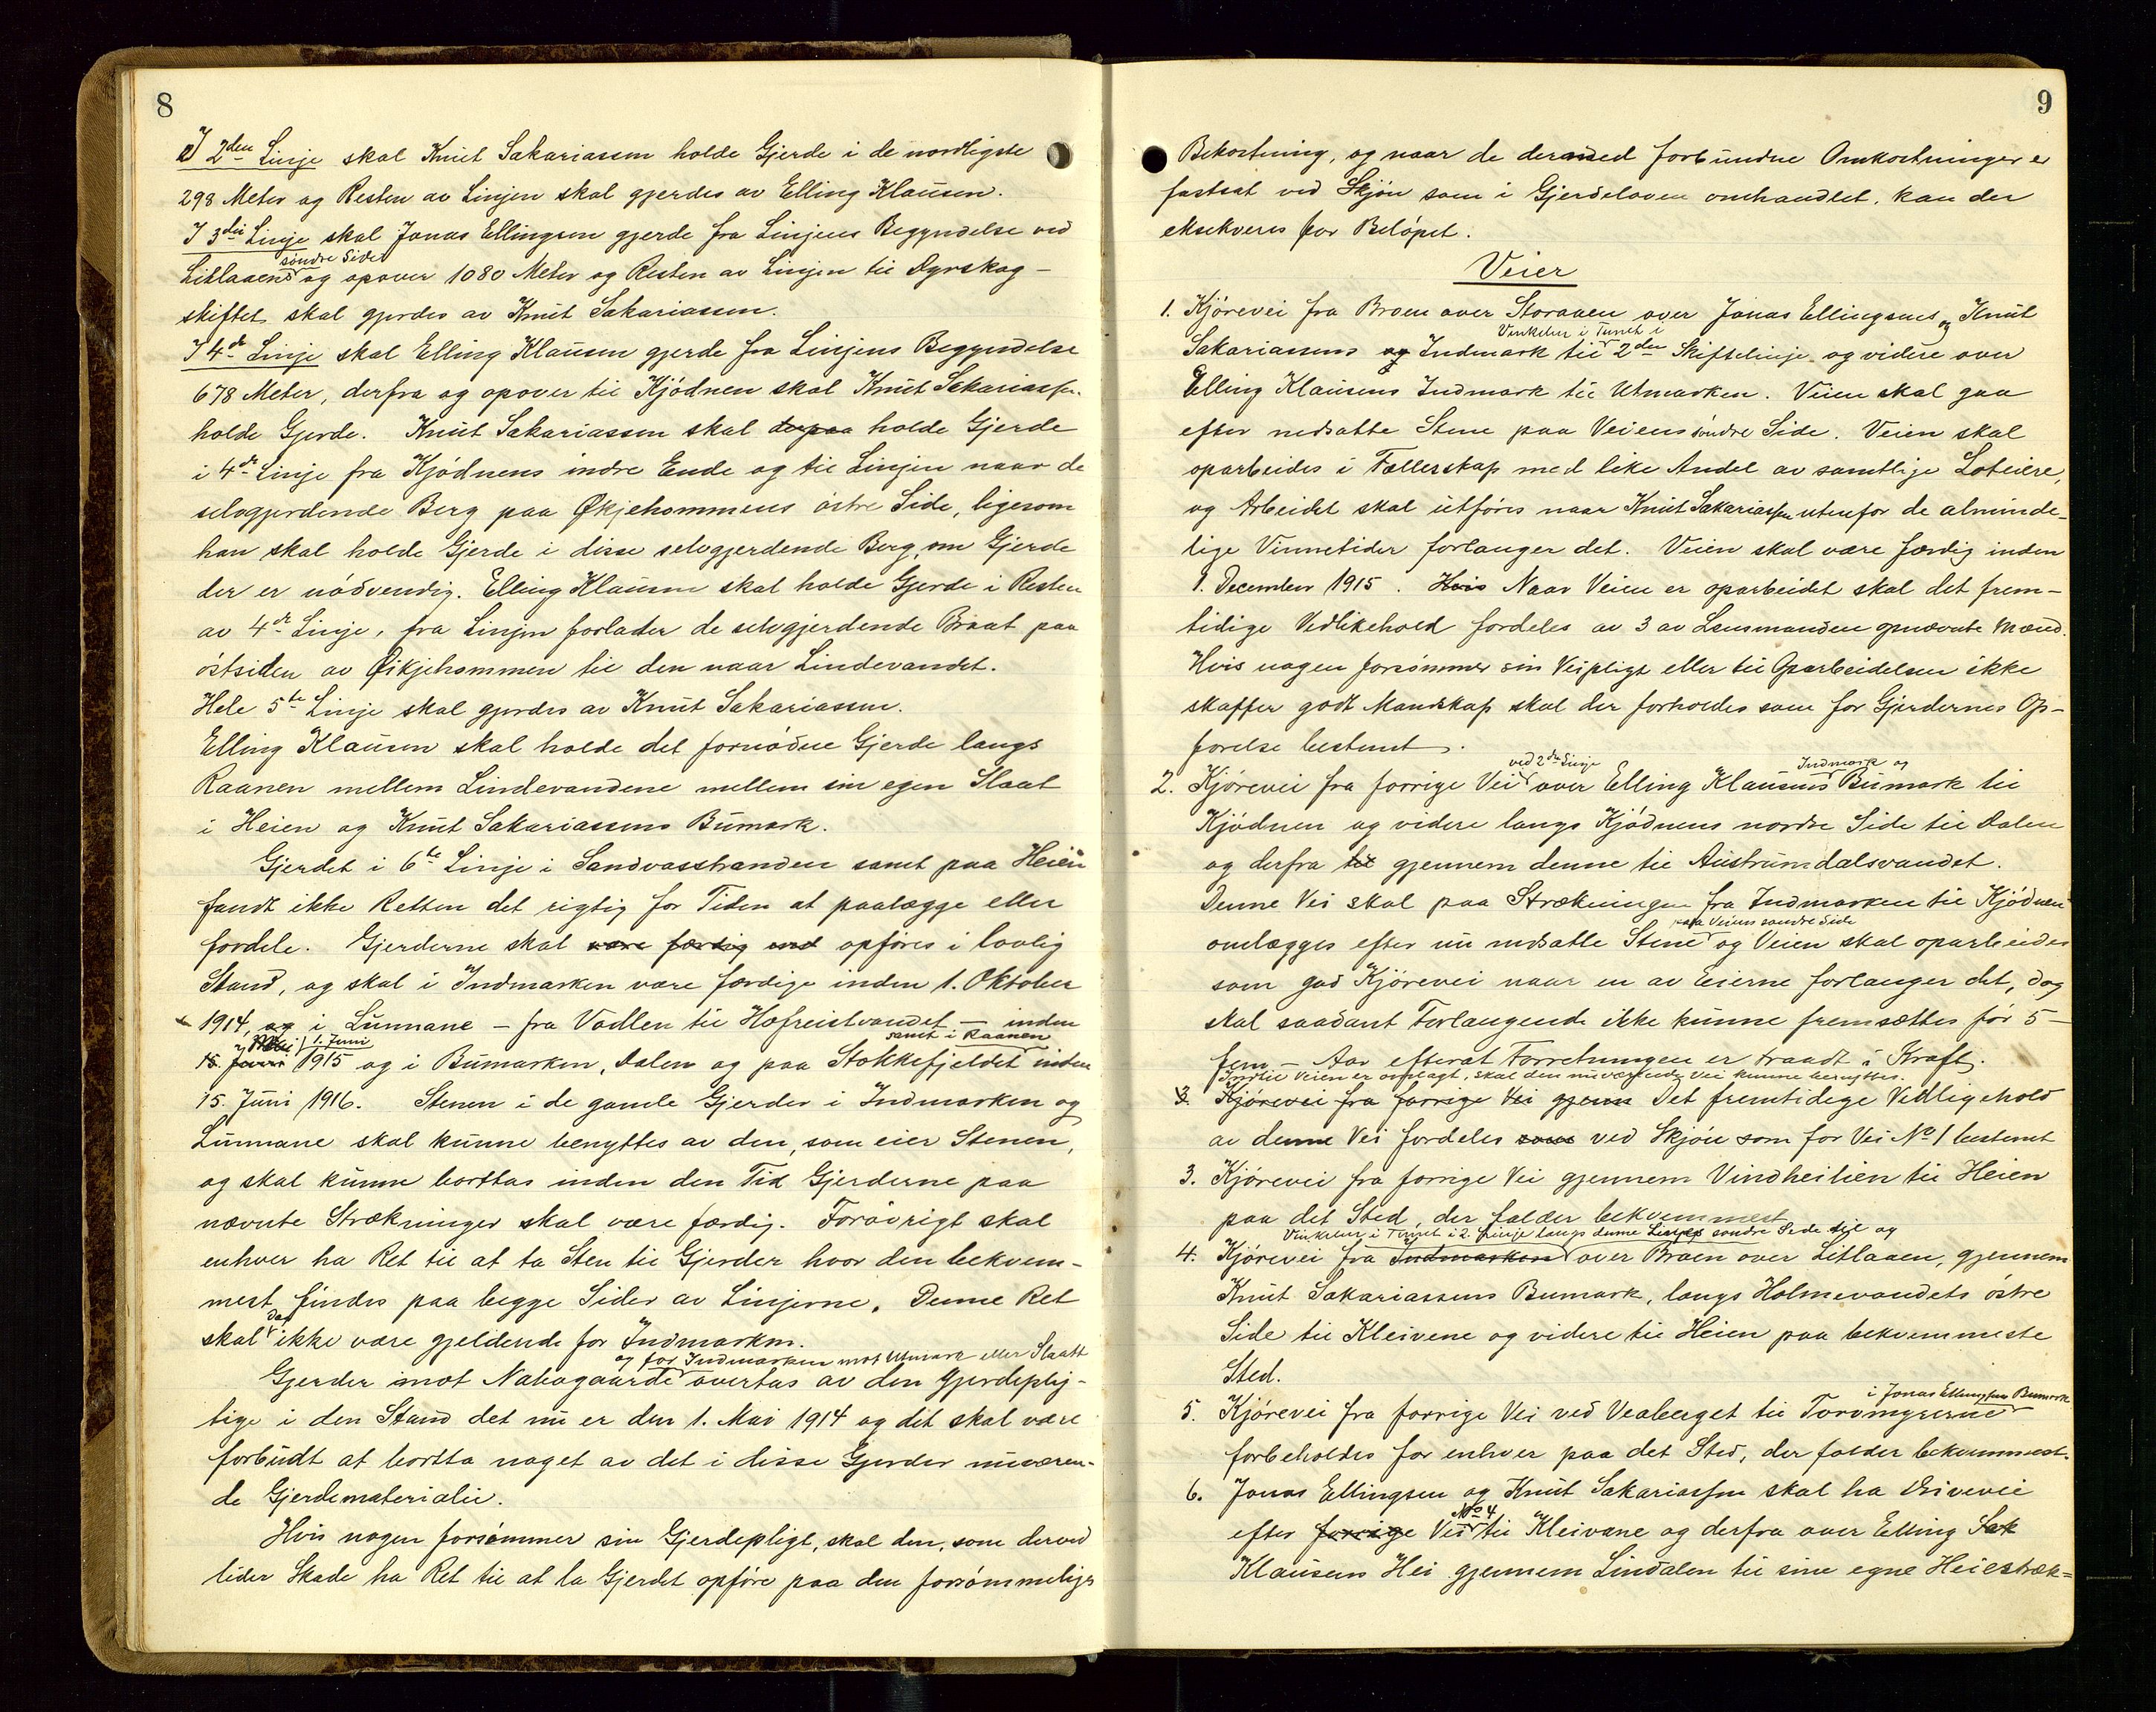 8
I 2den Linje skal Knut Sakariassen holde Gjerde i de nordligste
298 Meter og Resten av Linjen skal gjerdes av Elling Klausen.
I 3die Linje skal Jonas Ellingsen gjerde fra Linjens Begyndelse ved
søndre Side
Litlaaens og opover 1080 Meter og Resten av Linjen til Dyrskog-
skiftet skal gjerdes av Knut Sakariassen.
I 4de Linje skal Elling Klausen gjerde fra Linjens Begyndelse
678 Meter, derfra og opover til Kjødnen skal Knut Sakariassen
holde Gjerde. Knut Sakariassen skal derpaa holde Gjerde
i 4de Linje fra Kjødnens indre Ende og til Linjen naar de
selvgjerdende Berg paa Økjehommens østre Side, ligesom
han skal holde Gjerde i disse selvgjerdende Berg, om Gjerde
der er nødvendig. Elling Klausen skal holde Gjerde i Resten
av 4de Linje, fra Linjen forlader de selvgjerdende Braat paa
østsiden av Øikjehommen til den naar Lindevandet.
Hele 5te Linje skal gjerdes av Knut Sakariassen.
Elling Klausen skal holde det fornødne Gjerde langs
Raanen mellem Lindevandene mellem sin egen Slaat
i Heien og Knut Sakariassens Bumark.
Gjerdet i 6te Linje i Sandvasstranden samt paa Heien
fandt ikke Retten det rigtig for Tiden at paalægge eller
fordele. Gjerderne skal være færdig ind opføres i lovlig
Stand, og skal i Indmarken være færdige inden 1. Oktober
1914, og i Lunnane - fra Vadlen til Hofreistvandet - inden
Mai 1. Juni samt i Raanen
15. Juni 1915 og i Bumarken, Dalen og paa Stokkefjeldet inden
15. Juni 1916. Stenen i de gamle Gjerder i Indmarken og
Lunnane skal kunne benyttes av den, som eier Stenen,
og skal kunne borttas inden den Tid Gjerderne paa
nævnte Strækninger skal være færdig. Forøvrigt skal
enhver ha Ret til at ta Sten til Gjerder hvor den bekvem-
mest findes paa begge Sider av Linjerne. Denne Ret
dog
skal ikke være gjeldende for Indmarken.
og for Indmarken mot Utmark eller Slaatt
Gjerder imot Nabogaarde overtas av den gjerdeplig-
tige i den Stand det nu er den 1. Mai 1914 og dit skal være
forbudt at bortta noget av det i disse Gjerder nuværen-
de Gjerdematerialie.
Hvis nogen forsømmer sin Gjerdepligt, skal den, som derved
lider Skade ha Ret til at la Gjerdet opføre paa den forsømmeliges
9
Bekostning, og naar de dermed forbundne Omkostninger er
fastsat ved Skjøn som i Gjerdeloven omhandlet, kan der
eksekveres for Beløpet.
Veier
1. Kjørevei fra Broen over Storaaen over Jonas Ellingsens og Knut
Vinkelen i Tunet i
Sakariassens og Indmark til 2den Skiftelinje og videre over
Elling Klausens Indmark til Utmarken. Veien skal gaa
efter nedsatte Stene paa Veiens søndre Side. Veien skal
oparbeides i Fællerskap med like Andel av samtlige Loteiere,
og Arbeidet skal utføres naar Knut Sakariassen utenfor de alminde-
lige Vinnetider forlanger det. Veien skal være færdig inden
1. December 1915. Hvis Naar Veien er oparbeidet skal det frem-
tidige Vedlikehold fordeles av 3 av Lensmanden opnævnte Mænd.
Hvis nogen forsømmer sin Veipligt eller til Oparbeidelsen ikke
skaffer godt Mandskap skal der forholdes som for Gjerdernes Op-
førelse bestemt.
ved 2den Linje Indmark og
2. Kjørevei fra forrige Vei over Elling Klausens Bumark til
Kjødnen og videre langs Kjødnens nordre Side til Dalen
og derfra til gjennem denne til Austrumdalsvandet.
Denne Vei skal paa Strækningen fra Indmarken til Kjødnen
paa Veiens søndre Side
omlægges efter nu nedsatte Stene og Veien skal oparbeides
som god Kjørevei naar en av Eierne forlanger det, dog
skal saadant Forlangende ikke kunne fremsættes før 5 -
fem - Aar efterat Forretningen er traadt i Kraft.
Indtil Veien er omlagt, skal den nuværende Vei kunne benyttes.
3. Kjørevei fra forrige Vei gjenn Det fremtidige Vedligehold
av denne Vei fordeles som ved Skjøn som for Vei No 1 bestemt
3. Kjørevei fra forrige Vei gjennem Vindheilien til Heien
paa det Sted, der falder bekvemmest
Vinkelen i Tunet i 2. Linje langs denne Linjes søndre Side til og
4. Kjørevei fra Indmarken over Broen over Litlaaen, gjennem
Knut Sakariassens Bumark, langs Holmevandets østre
Side til Kleivene og videre til Heien paa bekvemmeste
Sted.
i Jonas Ellingsens Bumark
5. Kjørevei fra forrige Vei ved Veaberget til Torvmyrerne
forbeholdes for enhver paa det Sted, der falder bekvemmest.
6. Jonas Ellingsen og Knut Sakariassen skal ha Drivevei
No 4
efter forrige Vei til Kleivane og derfra over Elling Sak
Klausens Hei gjennem Lindalen til sine egne Heiestræk-